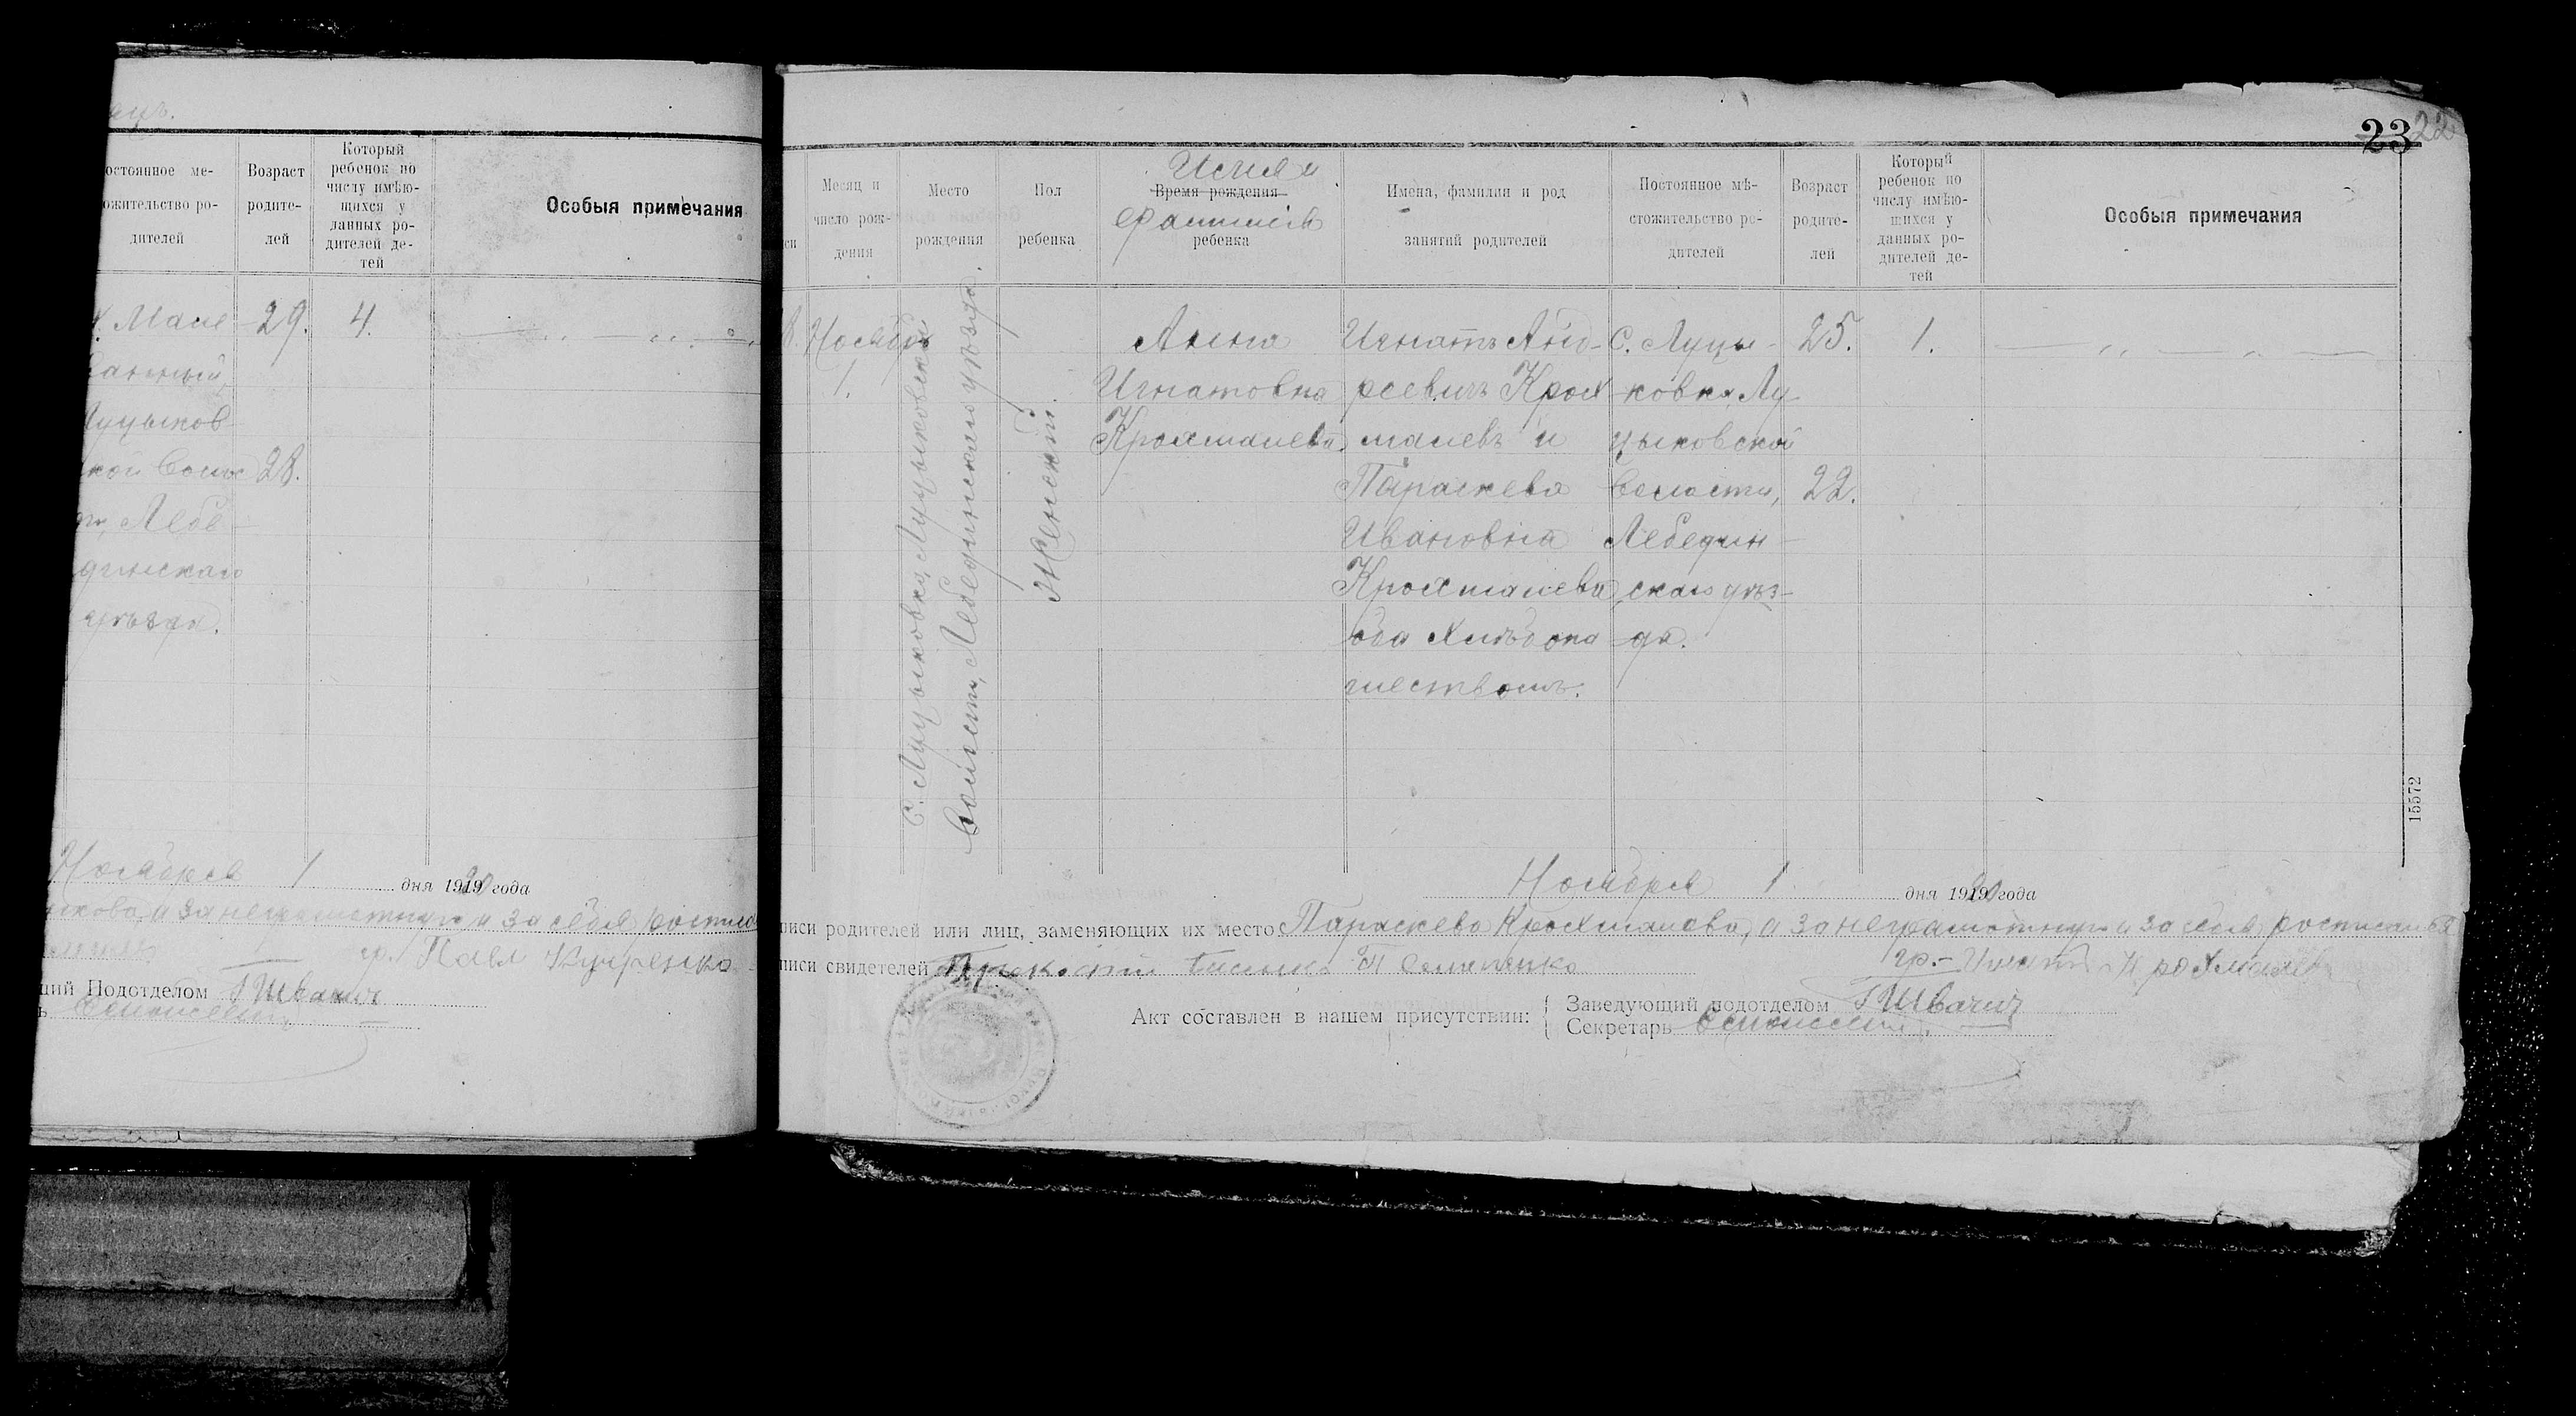 остоянное ме-
ожительство ро-
дителей
Возраст
родите-
лей
Который
ребенок по
числу имѣю-
щихся у
данных ро-
дителей де-
тей
Особыя примечания
29.
4.
Луцыков
кой Волос
28.
Лебе-
динскаго
уѣзда.
Ноября 1 дня 1920 года
а за неграмотную и за себя
гр. Павел
ций Подотделом ГШвачич
23 22
Месяц и
число рож-
дения
Место
рождения
Пол
ребенка
Имя и
Время рождения
фамилия
ребенка
Имена, фамилии и род
занятий родителей
Постоянное мѣ-
стожительство ро-
дителей
Возраст
родите-
лей
Который
ребенок по
числу имѣю-
щихся у
данных ро-
дителей де-
тей
Особыя примечания
8.
Ноября
1.
С. Луцыковка, Луцыковской
Волости, Лебединскаго уѣзда.
Женскій.
Анна
Игнатовна
Крохмалева.
Игнатъ Анд-
реевичъ Крох
малевъ и
Параскева
Ивановна
Крохмалева
оба хлѣбопа
шествомъ.
С. Луцы-
ковка, Лу-
цыковской
Волости,
Лебедин-
скаго уѣз-
да.
25.
22.
1.
15572
Ноября 1 дня 1920 года
писи родителей или лиц, заменяющих их место Параскева Крохмалева, а за неграмотную и за себя росписался
гр.- Игнат Крохмалев
писи свидетелей
Акт составлен в нашем присутствии:
Заведующий подотделом ГШвачич
Секретарь